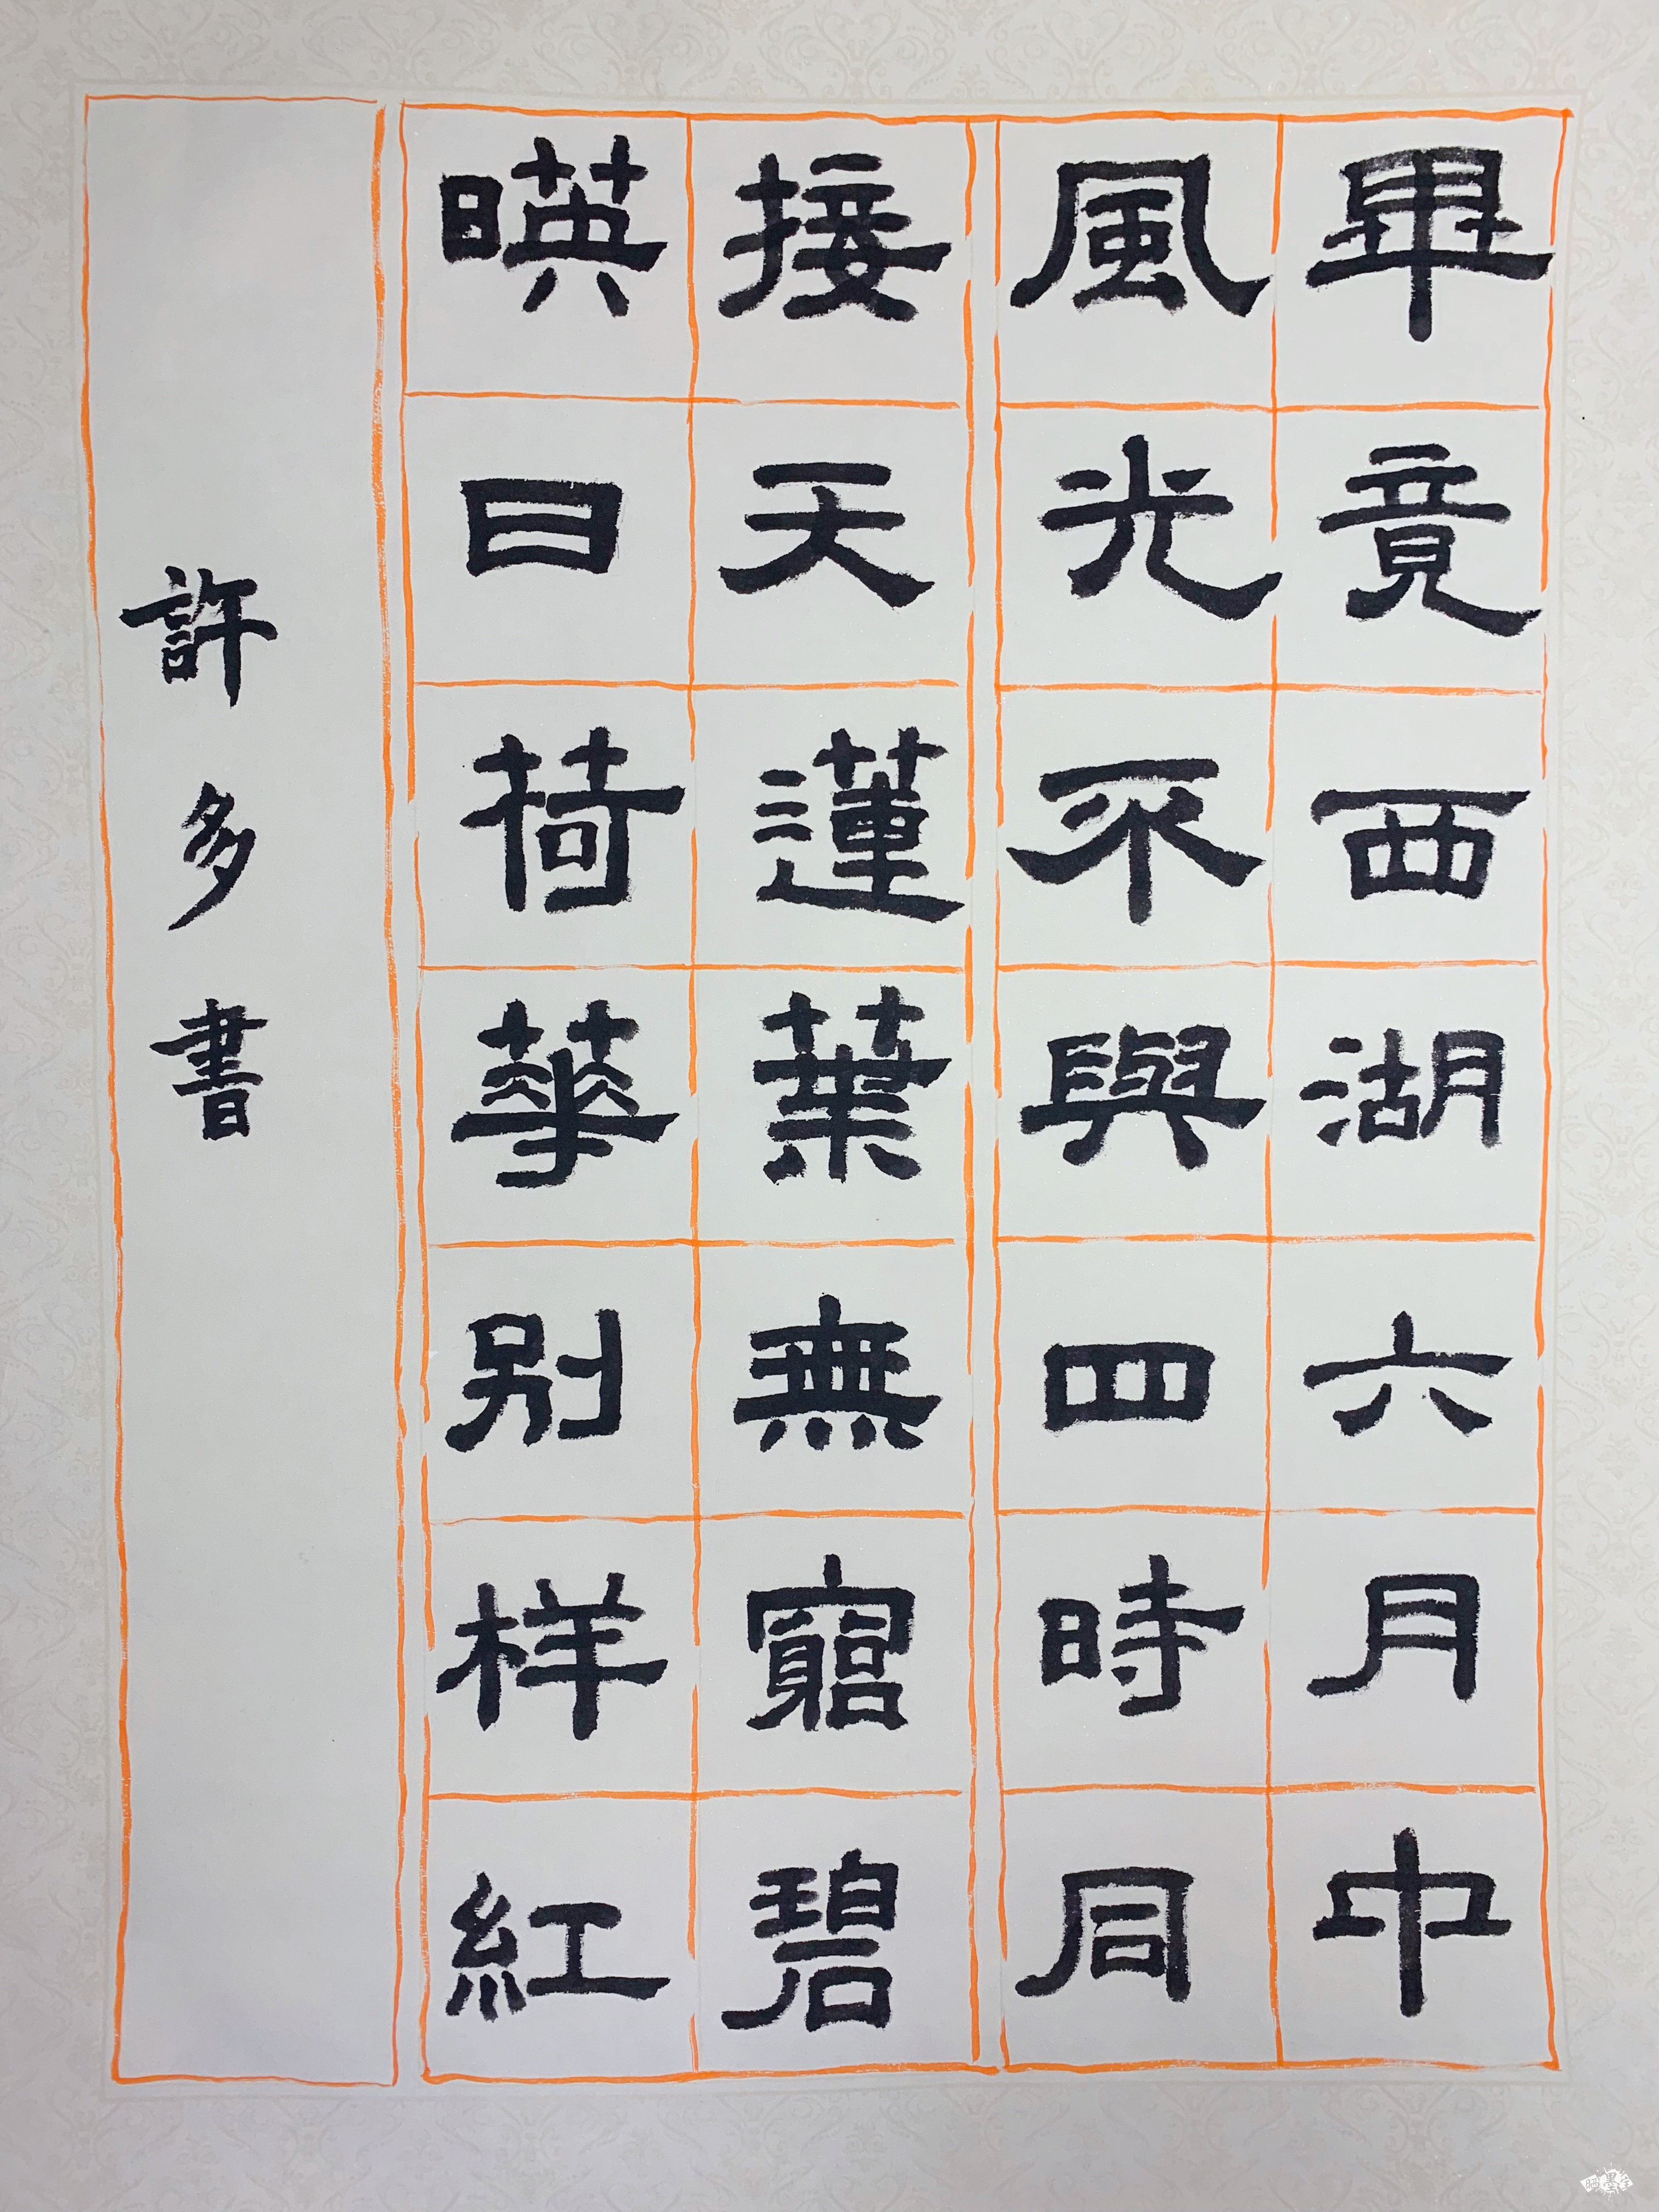 畢竟西湖六月中
風光不與四時同
接天蓮葉無竆碧
暎日荷華别样紅
許多書